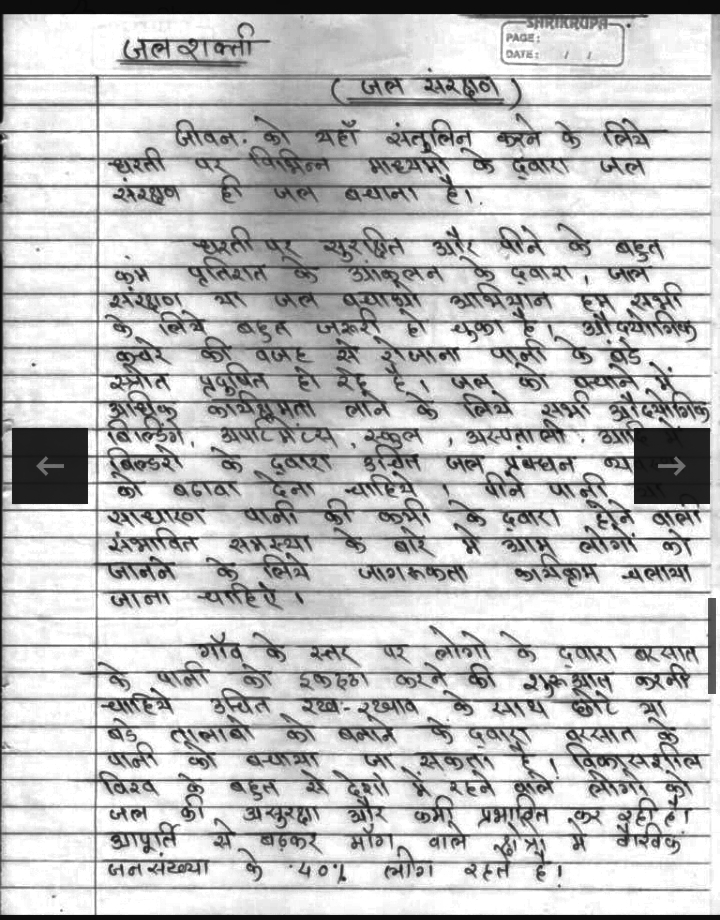 SHRIKRUPA
PAGE:
DATE: / /
जल शक्ती
( जल संरक्षण )
जीवन को यहाँ संतुलित करने के लिये
धरती पर विभिन्न माध्यमों के द्वारा जल
संरक्षण ही जल बचाना है।
धरती पर सुरक्षित और पीने के बहुत
कम प्रतिशत के आंकलन के द्वारा, जल
संरक्षण या जल बचाओ अभियान हम सभी
के लिये बहुत जरूरी हो चुका है। औद्योगिक
कचरे की वजह से रोजाना पानी के बडे
स्त्रोत प्रदुषित हो रहे है। जल को बचाने में
अधिक कार्यक्षमता लाने के लिये सभी औद्योगिक
बिल्डिंगे, अपार्टमेंटस, स्कुल, अस्पतालो, आदि में
बिल्डरो के द्वारा उचित जल प्रबन्धन
को बढावा देना चाहिये। पीने पानी या
साधारण पानी की कमी के द्वारा होने वाली
संभावित समस्या के बारे में आम लोगों को
जानने के लिये जागरूकता कार्यक्रम चलाया
जाना चाहिए।
गाँव के स्तर पर लोगो के द्वारा बरसात
के पानी को इकठ्ठा करने की शुरूआत करनी
चाहिये उचित रख-रखाव के साथ छोटे या
बडे तालाबो को बनाने के द्वारा बरसात के
पानी को बचाया जा सकता है। विकासशील
विश्व के बहुत से देशो में रहने वाले लोगो को
जल की असुरक्षा और कमी प्रभावित कर रही है।
आपूर्ति से बढ़कर माँग वाले क्षेत्रो में वैश्विक
जनसंख्या के 40% लोग रहते है।